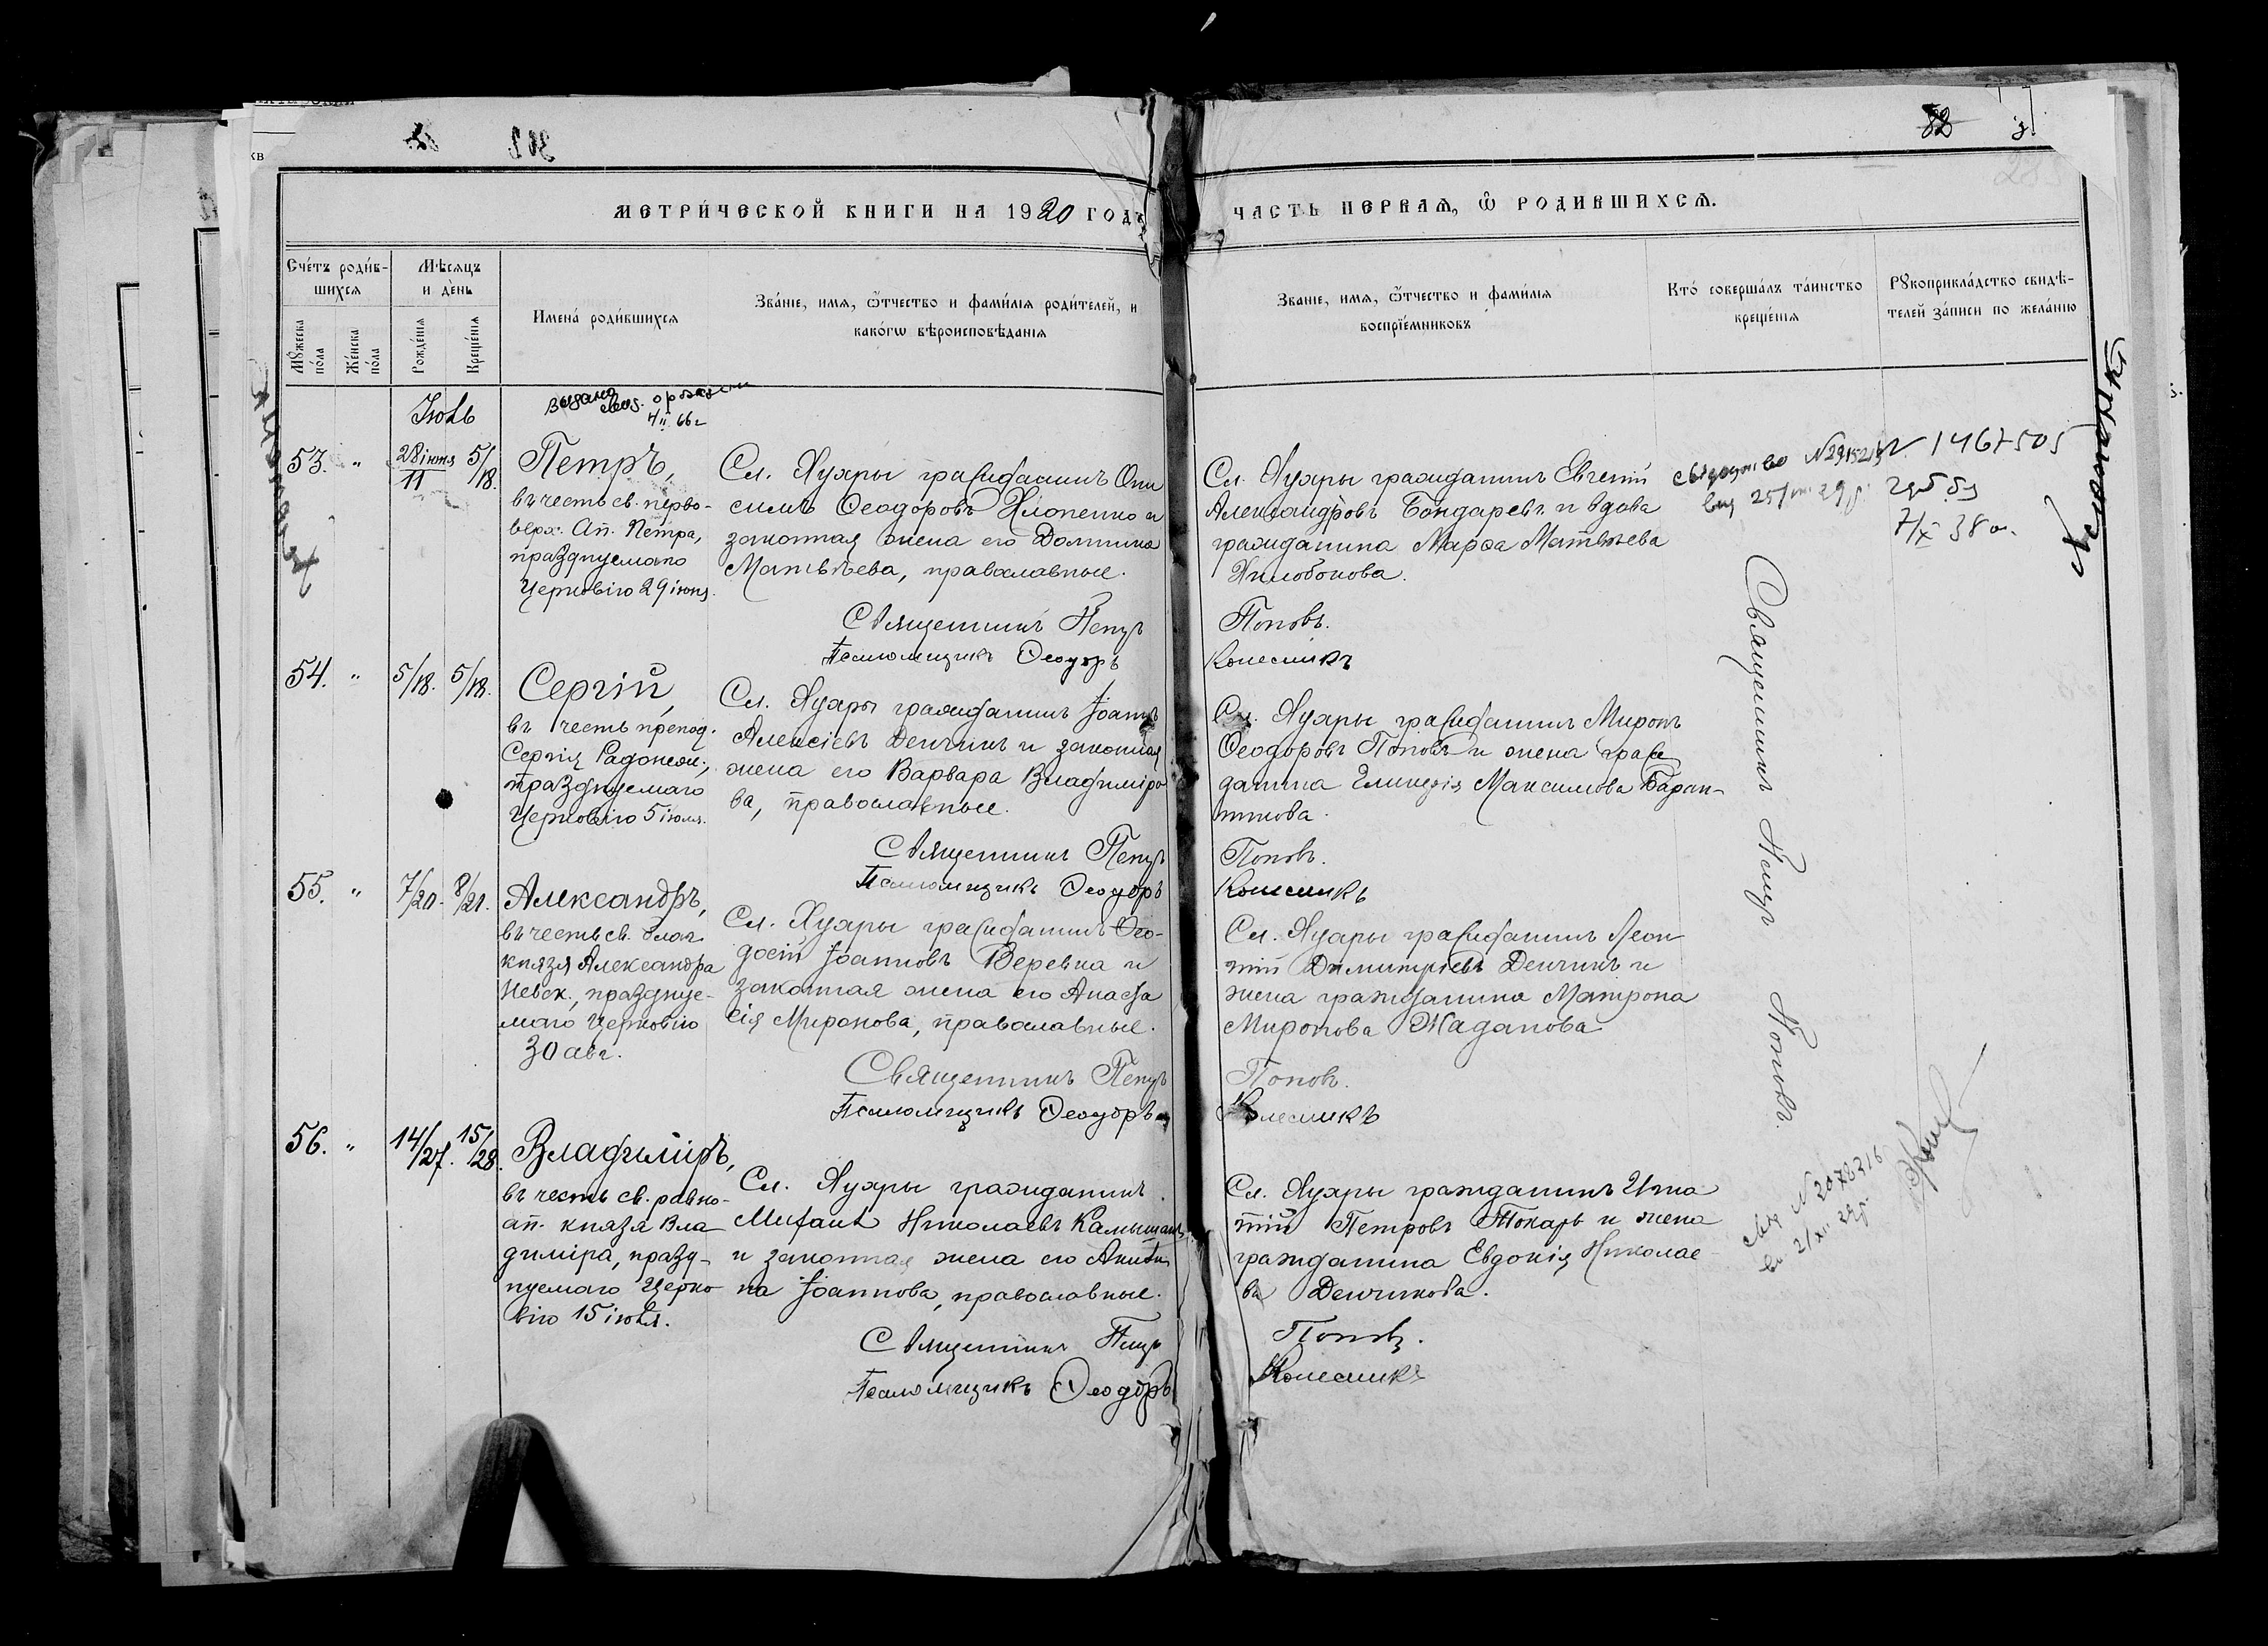 МЕТРИ́ЧЕСКОЙ КНИГИ НА 1920 ГОДЪ
ЧАСТЬ ПЕРВАЯ, Ѡ РОДИВШИХСЯ.
Сче́тъ роди́в-
шихся
Мꙋ́жеска по́ла
Же́нска по́ла
Мѣ́сяцъ
и де́нь
Рожде́нїя
Креще́нїя
Имена́ роди́вшихся
Зва́нїе, имя, ѻ҆́тчество и фами́лїя роди́телей, и
како́гѡ вѣроисповѣ́данїя
Званїе, имя, ѻ҆́тчество и фами́лїя
воспрїе́мниковъ
Кто́ соверша́лъ та́инство
креще́нїя
Рꙋкоприкла́дство свидѣ́-
телей за́писи по жела́нїю
Іюль
53. " 28 іюня/11 5/18.
Петръ,
въ честь св. перво-
верх. Ап. Петра,
празднуемаго
Церковію 29 іюня.
Сл. Ауары гражданинъ Они
симъ Ѳеодоровъ Клопенко и
законная жена его Домника
Матвѣева, православные.
Священникъ Петръ
Псаломщикъ Ѳеодоръ
Сл. Ауары гражданинъ Евгеній
Александровъ Бондаревъ и вдова
гражданина Марѳа Матвѣева
Хилобокова.
Поповъ.
Колесникъ
1467505
7/X 38 г.
54. " 5/18. 5/18.
Сергій,
въ честь препод.
Сергія Радонеж.,
празднуемаго
Церковію 5 іюля.
Сл. Ауары гражданинъ Іоаннъ
Алексіевъ Денчикъ и законная
жена его Варвара Владиміро
ва, православные.
Священникъ Петръ
Псаломщикъ Ѳеодоръ
Сл. Ауары гражданинъ Миронъ
Ѳеодоровъ Поповъ и жена граж
данина Гликерія Максимова Баран-
никова.
Поповъ.
Колесникъ
Священникъ Петръ Поповъ.
55. " 7/20. 8/21.
Александръ,
въ честь св. благ.
князя Александра
Невск., праздну-
маго Церковію
30 авг.
Сл. Ауары гражданинъ Ѳео-
досій Іоанновъ Веревка и
законная жена его Анаста
сія Миронова, православные.
Священникъ Петръ
Псаломщикъ Ѳеодоръ
Сл. Ауары гражданинъ Леон
тій Димитріевъ Денчикъ и
жена гражданина Матрона
Миронова Жаданова
Поповъ.
Колесникъ
56. " 14/27. 15/28.
Владиміръ,
въ честь св. равно-
ап. князя Вла
диміра, празд-
нуемаго Церко
вію 15 іюля.
Сл. Ауары гражданинъ
Михаилъ Николаевъ Камышанъ
и законная жена его Акили
на Іоаннова, православные.
Священникъ Петръ
Псаломщикъ Ѳеодоръ
Сл. Ауары гражданинъ Игна
тій Петровъ Токарь и жена
гражданина Евдокія Николае
ва Денчикова.
Поповъ.
Колесникъ